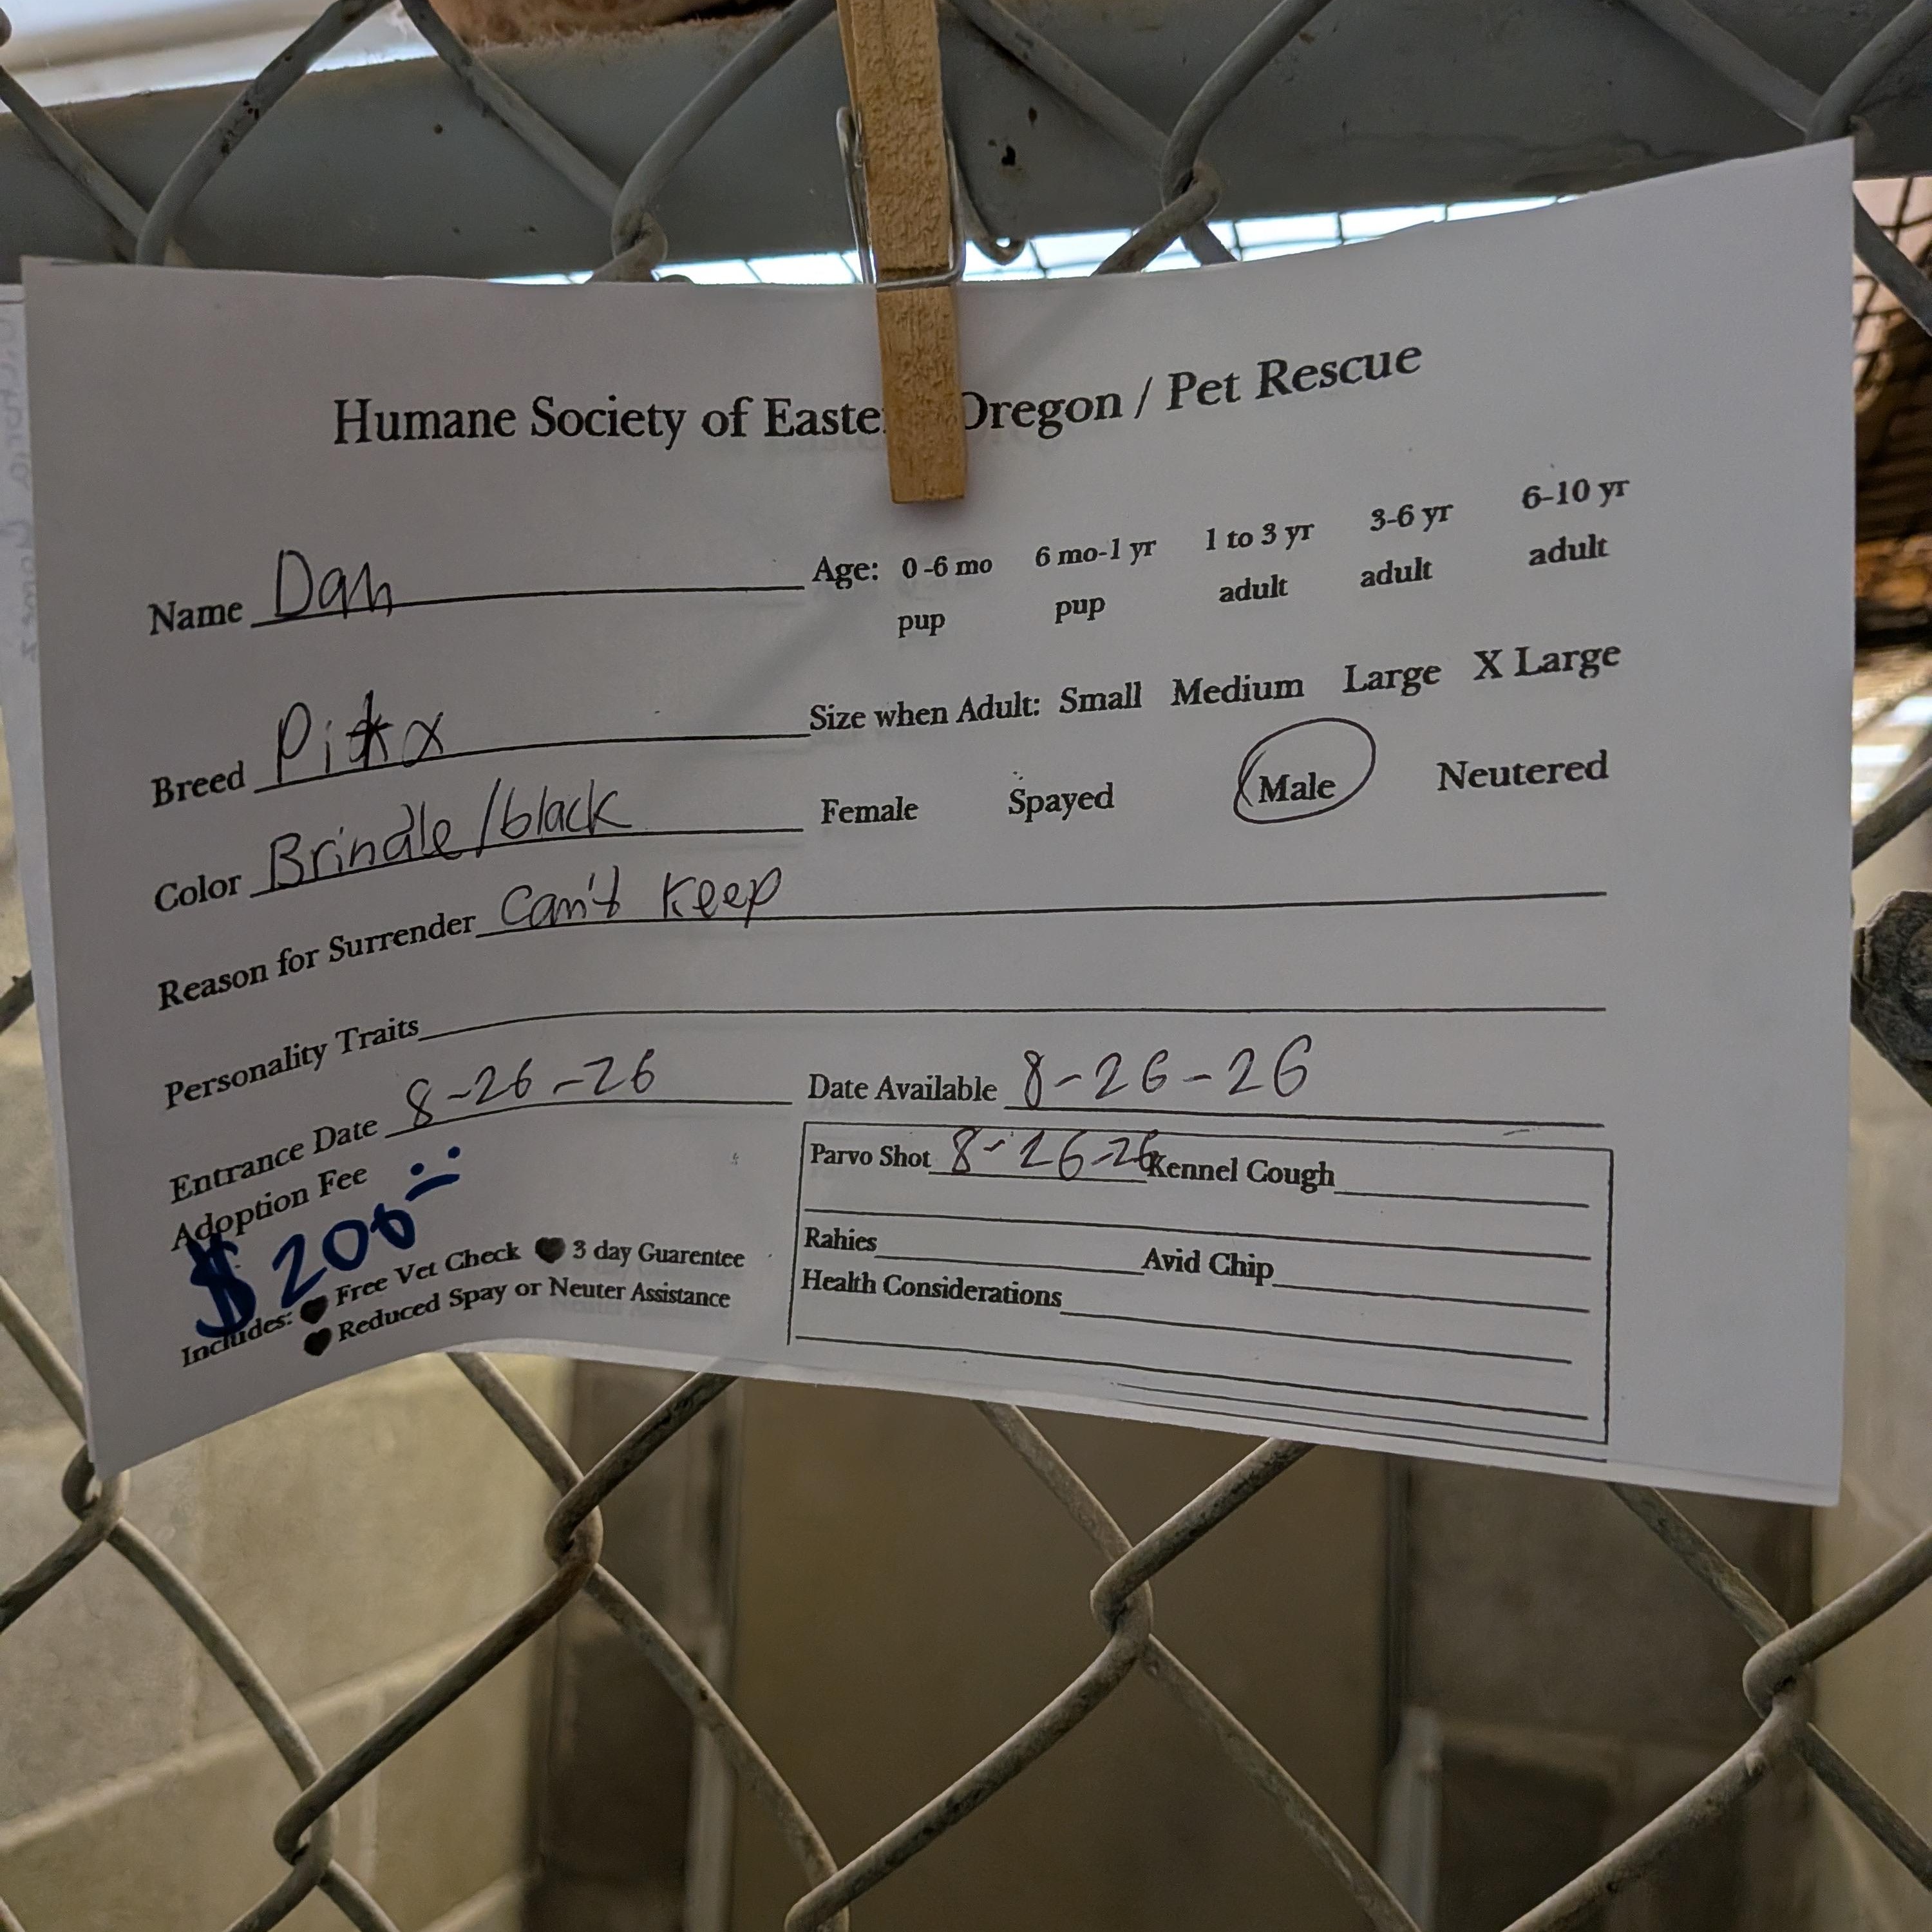 Humane Society of Easte Oregon / Pet Rescue
Name Dan Age: 0-6 mo pup 6 mo-1 yr pup 1 to 3 yr adult 3-6 yr adult 6-10 yr adult
Breed Pit x Size when Adult: Small Medium Large X Large
Color Brindle/black Female Spayed Male Neutered
Reason for Surrender Can't Keep
Personality Traits
Entrance Date 8-26-26 Date Available 8-26-26
Adoption Fee
$200
Includes: Free Vet Check 3 day Guarentee
Reduced Spay or Neuter Assistance
Parvo Shot 8-26-26 Kennel Cough
Rahies Avid Chip
Health Considerations